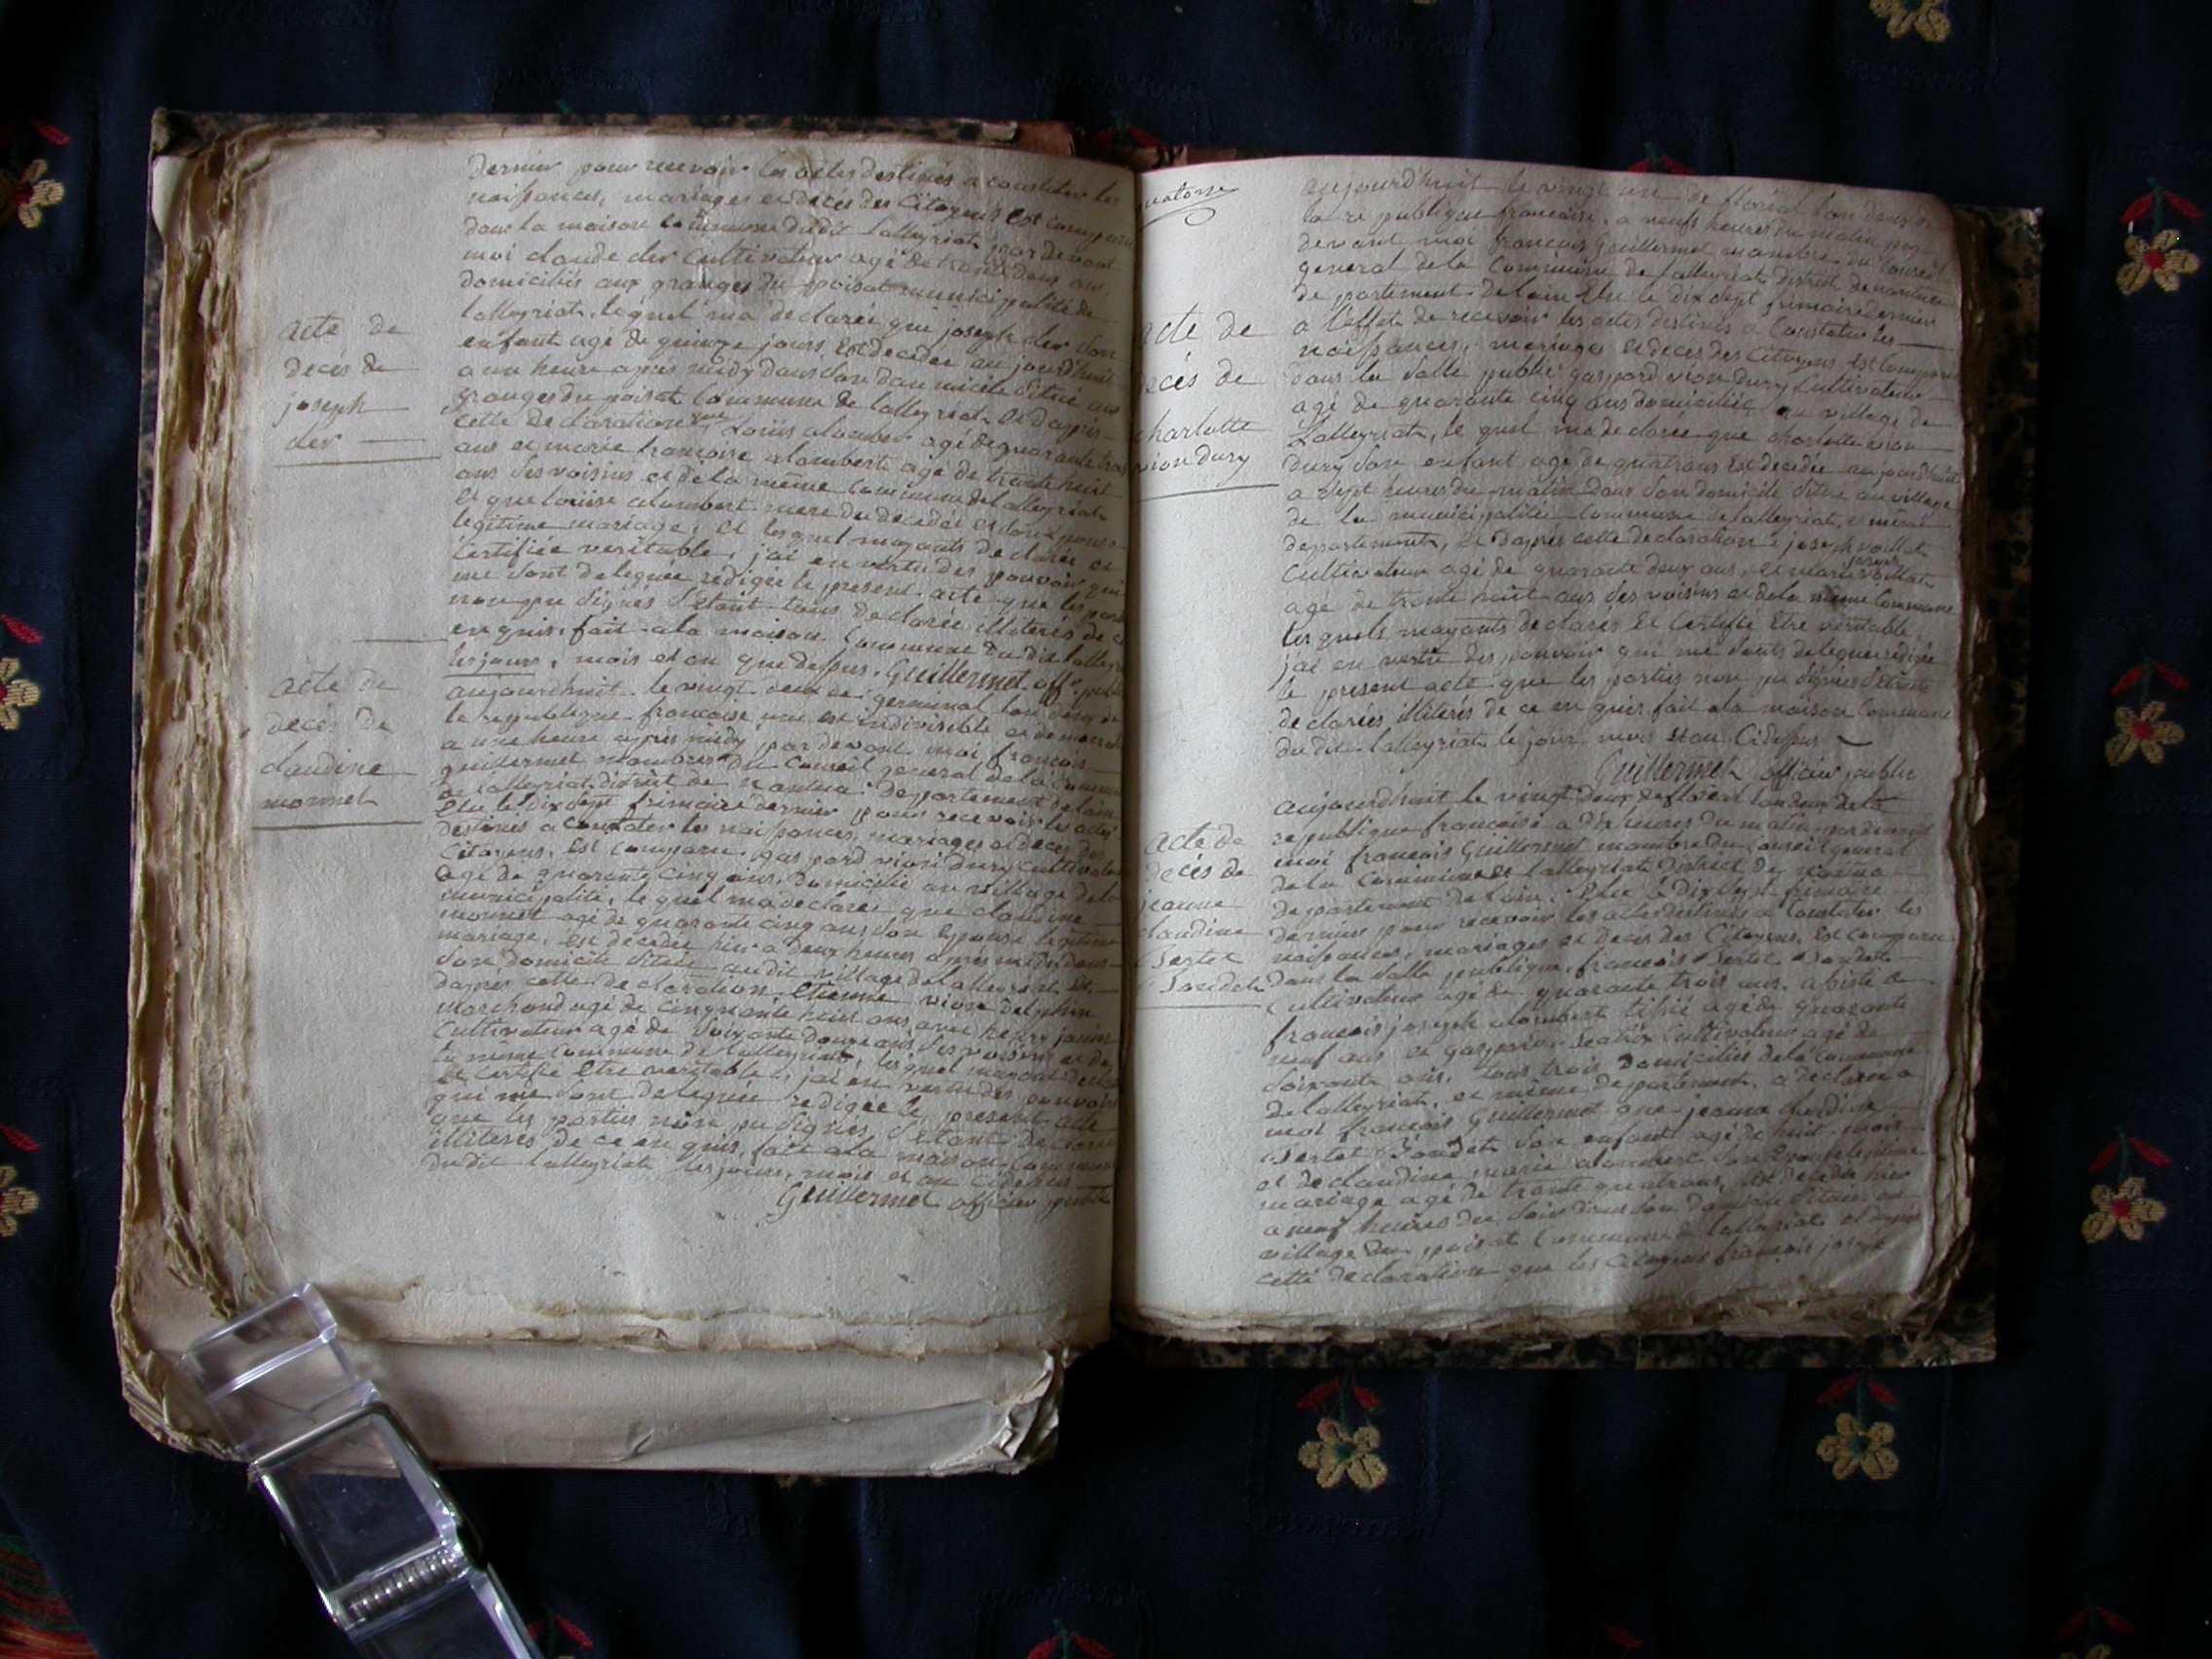 dernier pour recevoir les actes destinés a constater les
naissances, mariages et décés des Citoyens est comparu
dans la maison commune dudit lalleyriat par devant
moi claude der cultivateur agé de trente deux ans
domiciliés aux granges du poisat municipalité de
lalleyriat, le quel ma declarée que joseph der son
enfant agé de quinze jours est decedée au jourdhuit
a un heure aprés midy dans son domicile situé aux
granges du poisat commune de lalleyriat et daprés
cette declaration que Loüis alombert agé de quarante trois
ans et marie francoise alombert agé de trente huit
ans ses voisins et de la même commune de lalleyriat
et que loüise alombert mere du decedée et son epouse
legitime mariage, et lesquel mayants declarée et
certifiée veritable, j'ai en vertu des pouvoir qui
me sont deleguée redigée le present acte que les parti
non pu signés s'etant tous declarée illiterés de ce
enquis, fait a la maison commune du dit lalleyriat
les jours, mois et an que dessus. Guillermet off. public
acte de
decés de
joseph
der
aujourdhuit le vingt deux de germinal lan deux de
la republique francoise une est indivisible et democrat
a une heure aprés midy par devant moi francois
guillermet membre du conseil general de la commune
de lalleyriat district de nantua departement de lain
Elu le dix sept frimaire dernier pour recevoir les actes
destinés a constater les naissances, mariages et deces des
Citoyens, est comparu gaspard vion dury cultivateur
agé de quarante cinq ans, domicilié au village de la
municipalité, le quel ma declarée que claudine
monnet agé de quarante cinq ans son epouse legitime
mariage, est decedée hier a deux heures aprés midi dans
son domicile située audit village de lalleyriat et
daprés cette declaration Etienne vion delphin
marchand agé de cinquante huit ans avec henry janin
cultivateur agé de soixante douze ans ses voisins et de
la même commune de lalleyriat, lesquel mayant declaré
et certifié etre veritable, j'ai en vertu des pouvoirs
qui me sont deleguée redigée le present acte
que les parties non pu signés s'etant declarée
illiterés de ce enquis, fait a la maison commune
dudit lalleyriat les jours, mois et an cidessus
Guillermet officier public
acte de
decés de
claudine
monnet
quatorse
aujourdhuit le vingt un de floréal lan deux de
la republique francoise, a neufs heures du matin par
devant moi francois Guillermet membre du Conseil
general de la Commune de lalleyriat district de nantua
departement de lain Elu le dix sept frimaire dernier
a l'effet de recevoir les actes destinés a Constater les
naissances, mariages et deces des Citoyens est Comparu
dans la salle public gaspard vion dury Cultivateur
agé de quarante cinq ans domiciliée au village de
Lalleyriat, le quel ma declaree que charlotte vion
dury son enfant agé de quatrans est decedée aujourdhuit
a sept heures du matin dans son domicile situe au village
de la municipalitée commune de lalleyriat, et même
departement, et daprés cette declaration joseph vaillat
Cultivateur agé de quarante deux ans, et marie vaillat
agé de trente huit ans ses voisins et de la même Commune
lesquels mayants declarés et certifié etre veritable,
j'ai en vertu des pouvoir qui me sonts deleguee redigée
le present acte que les partis non pu signés s'etants
declarées illiterés de ce enquis fait a la maison Commune
du dit lalleyriat le jour, mois et an Cidessus
Guillermet officier public
acte de
decés de
charlotte
vion dury
aujourdhuit le vingt deux de floréal lan deux de la
republique francoise a dix heures du matin par devant
moi francois Guillermet membre du Conseil general
de la Commune de lalleyriat District de nantua
departement de lain, Elu le Dix sept frimaire
dernier pour recevoir les actes destinés a Constater les
naissances, mariages et decés des Citoyens, est comparu
dans la salle publique, francois Sertet Sandet
Cultivateur agé de quarante trois ans, assisté de
francois joseph alombert agé de quarante
neuf ans et gaspard Cultivateur agé de
soixante ans, tous trois domiciliés de la Commune
de lalleyriat, et même departement, a declaré a
moi francois Guillermet que jeanne claudine
Sertet Sandet son enfant agé de huit mois
et de claudine marie alombert son Epouse legitime
mariage agé de trente quatrans, est decedée hier
a neuf heures du soir dans son domicile située au
village du poisat Commune de lalleyriat et daprés
cette declaration que les Citoyens francois joseph
acte de
decés de
jeanne
claudine
Sertet
Sandet